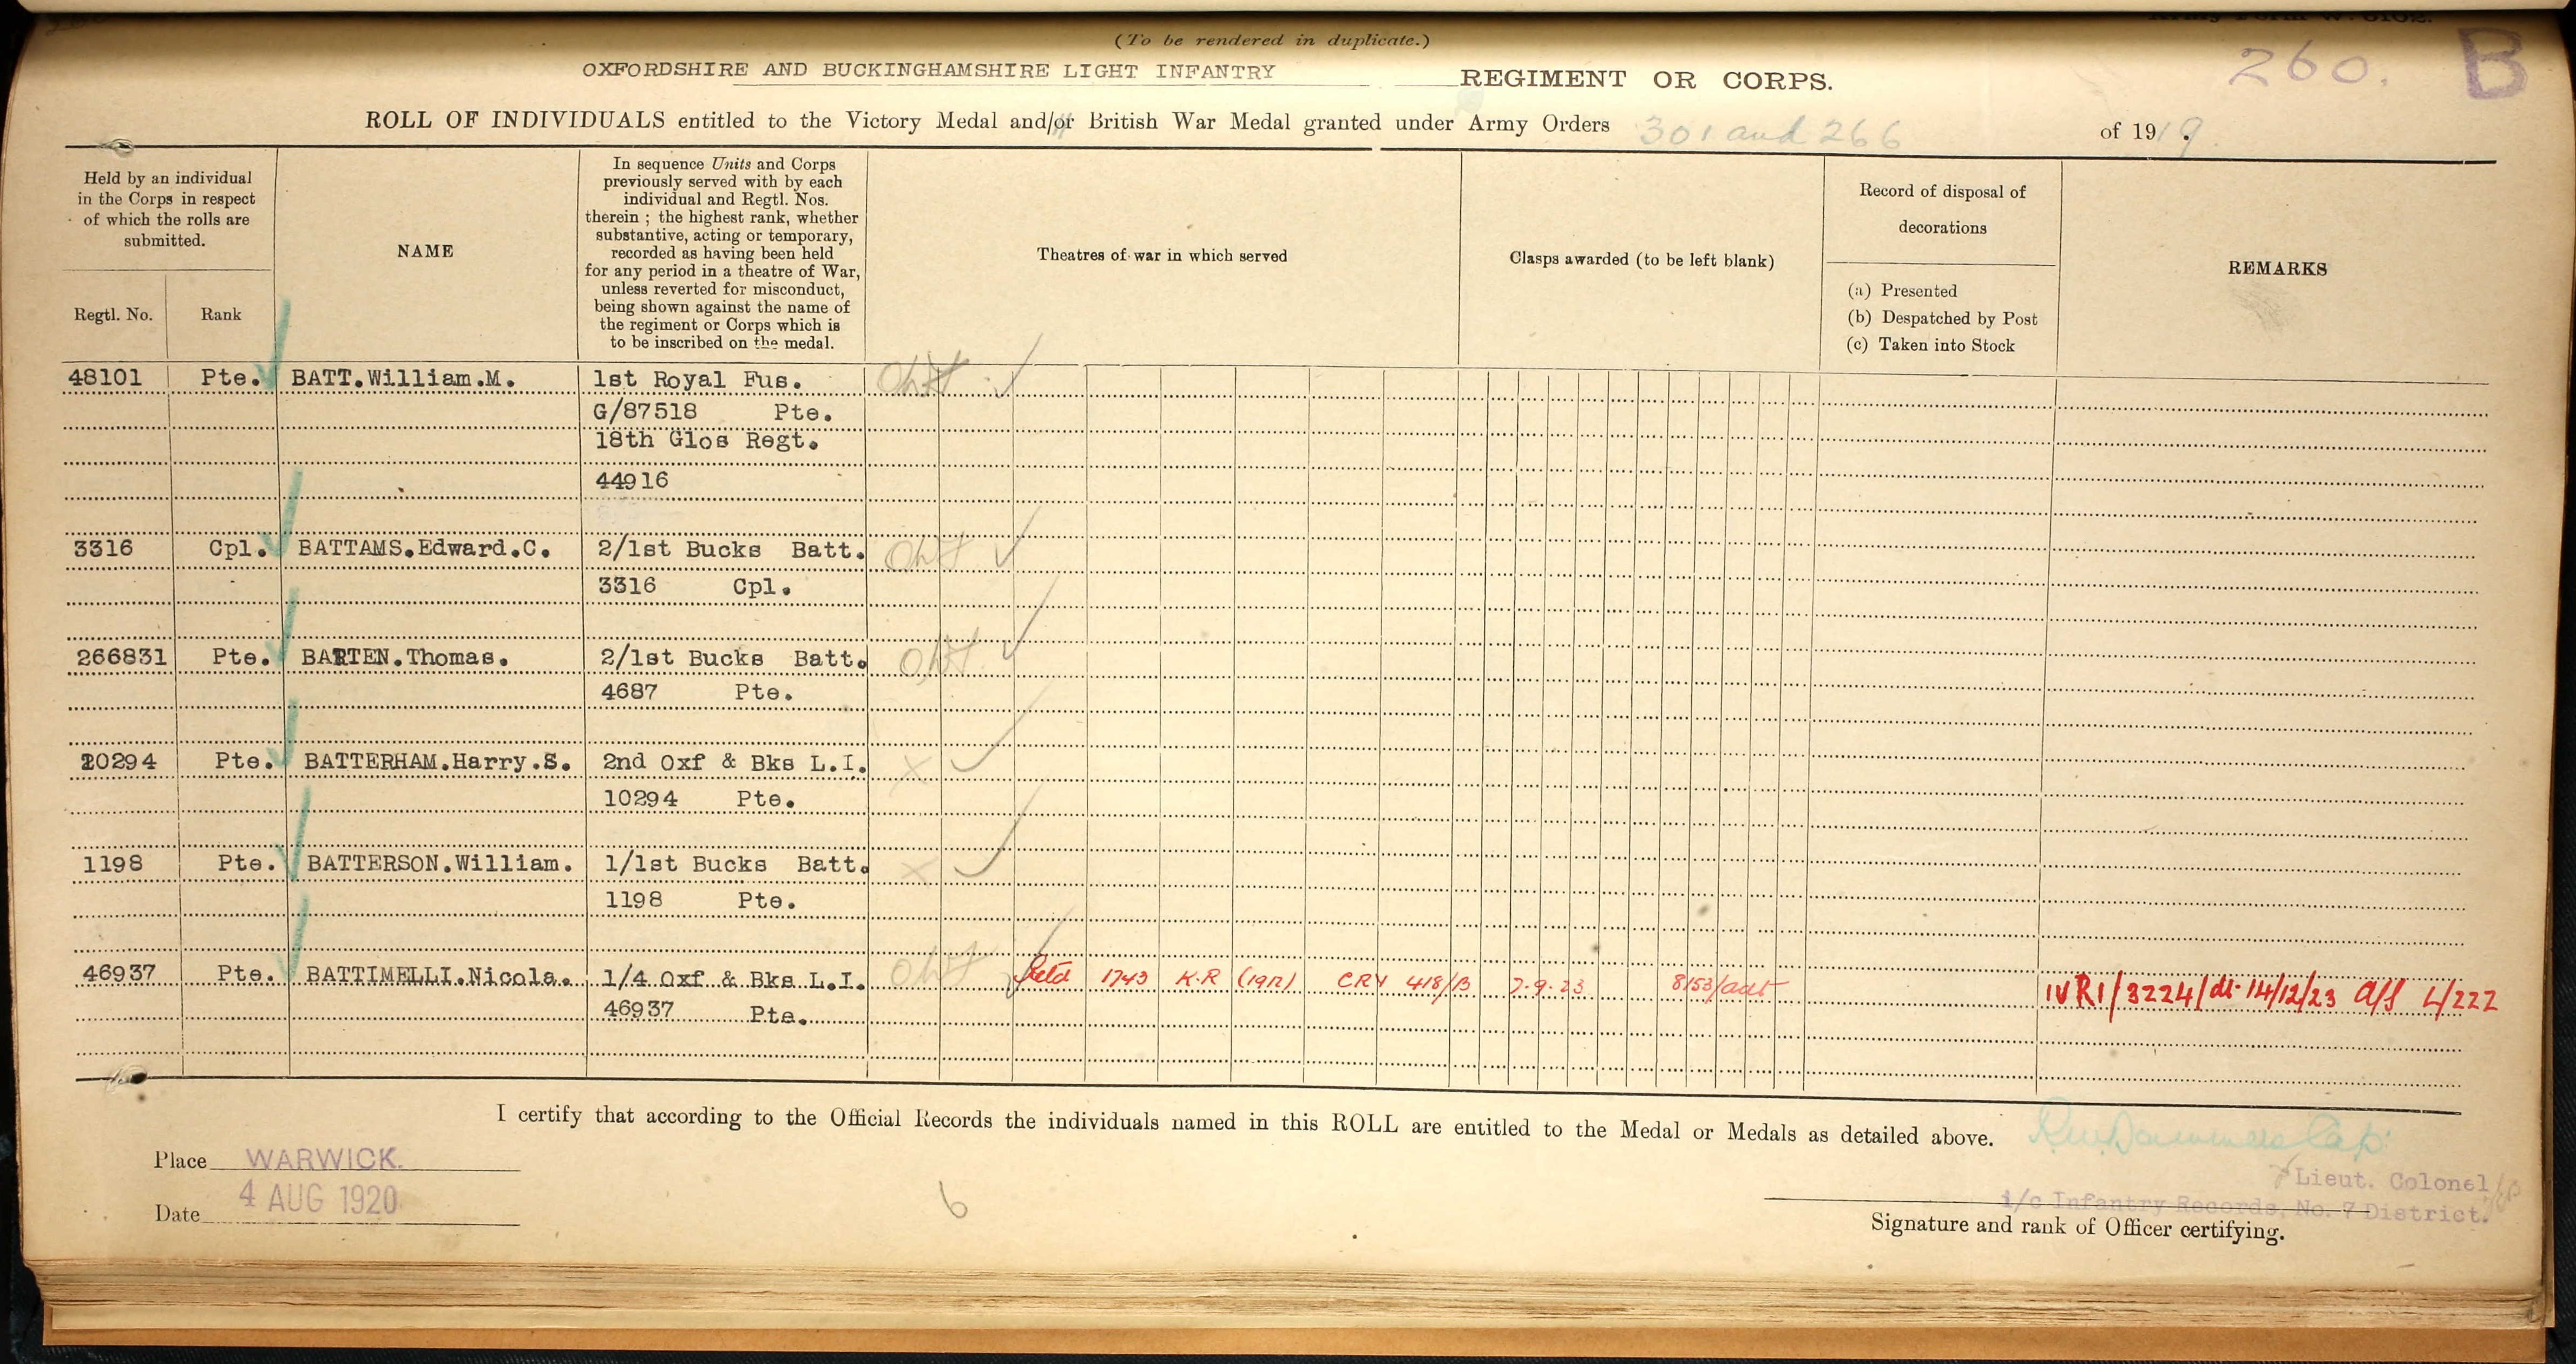 Army Form W. 5102.
(To be rendered in duplicate.)
260. B
OXFORDSHIRE AND BUCKINGHAMSHIRE LIGHT INFANTRY REGIMENT OR CORPS.
ROLL OF INDIVIDUALS entitled to the Victory Medal and/or British War Medal granted under Army Orders 301 and 266 of 1919.
Held by an individual
in the Corps in respect
of which the rolls are
submitted.
Regtl. No. Rank
NAME
In sequence Units and Corps
previously served with by each
individual and Regtl. Nos.
therein ; the highest rank, whether
substantive, acting or temporary,
recorded as having been held
for any period in a theatre of War,
unless reverted for misconduct,
being shown against the name of
the regiment or Corps which is
to be inscribed on the medal.
Theatres of war in which served
Clasps awarded (to be left blank)
Record of disposal of
decorations
(a) Presented
(b) Despatched by Post
(c) Taken into Stock
REMARKS
48101 Pte. BATT.William.M. 1st Royal Fus.
G/87518 Pte.
18th Glos Regt.
44916
3316 Cpl. BATTAMS.Edward.C. 2/1st Bucks Batt.
3316 Cpl.
266831 Pte. BATTEN.Thomas. 2/1st Bucks Batt.
4687 Pte.
10294 Pte. BATTERHAM.Harry.S. 2nd Oxf & Bks L.I. x
10294 Pte.
1198 Pte. BATTERSON.William. 1/1st Bucks Batt. x
1198 Pte.
46937 Pte. BATTIMELLI.Nicola. 1/4 Oxf & Bks L.I. Retd 1743 K.R (1912) CRY 418/B 7.9.23 8153/adt IVR1/3224/dt 14/12/23 L/222
46937 Pte.
I certify that according to the Official Records the individuals named in this ROLL are entitled to the Medal or Medals as detailed above.
Place WARWICK.
Date 4 AUG 1920
6
Lieut. Colonel
i/c Infantry Records, No. 7 District.
Signature and rank of Officer certifying.